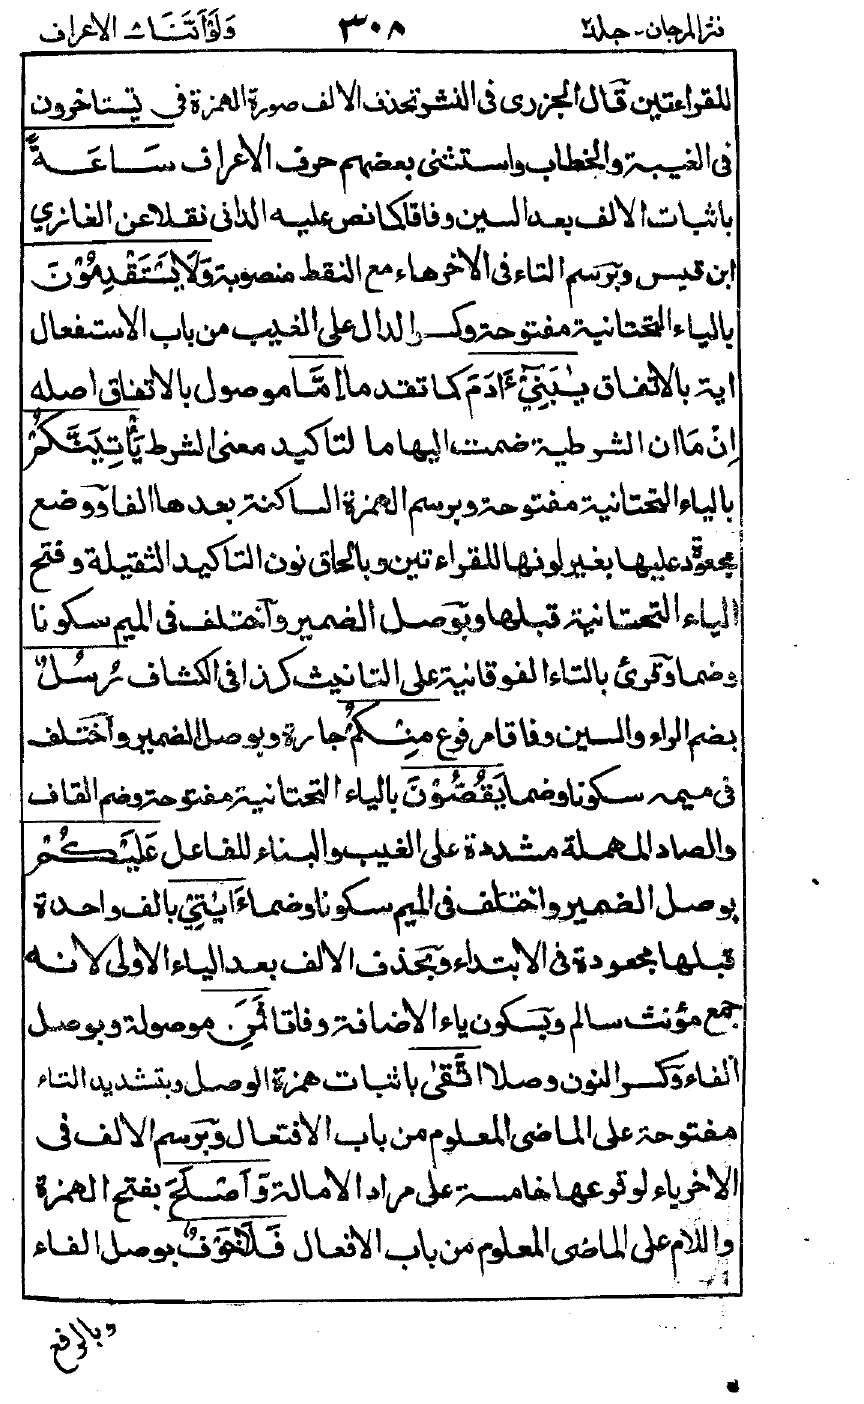 نثر المرجان - جلد٢ ٣٠٨ ولو أننا ٨ الاعراف
للقراءتين قال الجزرى فى النشر تحذف الالف صورة الهمزة فى يستاخرون
فى الغيبة والخطاب واستثنى بعضهم حرف الاعراف سَاعَةً
باثبات الالف بعد السين وفاقا كما نص عليه الدانى نقلا عن الغازي
ابن قيس وبرسم التاء فى الاخر هاء مع النقط منصوبة وَلَا يَسْتَقْدِمُوْنَ
بالياء التحتانية مفتوحة وكسر الدال على الغيب من باب الاستفعال
اية بالاتفاق يٰبَنِيْٓ ءَادَمَ كما تقدم اِمَّا موصول بالاتفاق اصله
اِنْ مَا ان الشرطية ضمت اليها ما لتاكيد معنى الشرط يَأْتِيَنَّكُمْ
بالياء التحتانية مفتوحة وبرسم الهمزة الساكنة بعدها الفا ووضع
مجعودة عليها بغير لونها للقراءتين وبالحاق نون التاكيد الثقيلة وفتح
الياء التحتانية قبلها وبوصل الضمير واختلف فى الميم سكونا
وضما وقرئ بالتاء الفوقانية على التانيث كذا فى الكشاف رُسُلٌ
بضم الراء والسين وفاقا مرفوع مِنْكُمْ جارة وبوصل الضمير واختلف
فى ميمه سكونا وضما يَقُصُّوْنَ بالياء التحتانية مفتوحة وضم القاف
والصاد المهملة مشددة على الغيب والبناء للفاعل عَلَيْكُمْ
بوصل الضمير واختلف فى الميم سكونا وضما ءَايٰتِيْ بالف واحدة
قبلها مجعودة فى الابتداء وبحذف الالف بعد الياء الاولى لانه
جمع مؤنث سالم وبسكون ياء الاضافة وفاقا فَمَنِ موصولة وبوصل
الفاء وكسر النون وصلا اتَّقٰى باثبات همزة الوصل وبتشديد التاء
مفتوحة على الماضى المعلوم من باب الافتعال وبرسم الالف فى
الاخر ياء لوقوعها خامسة على مراد الامالة وَاَصْلَحَ بفتح الهمزة
واللام على الماضى المعلوم من باب الافعال فَلَا خَوْفٌ بوصل الفاء
وبالرفع